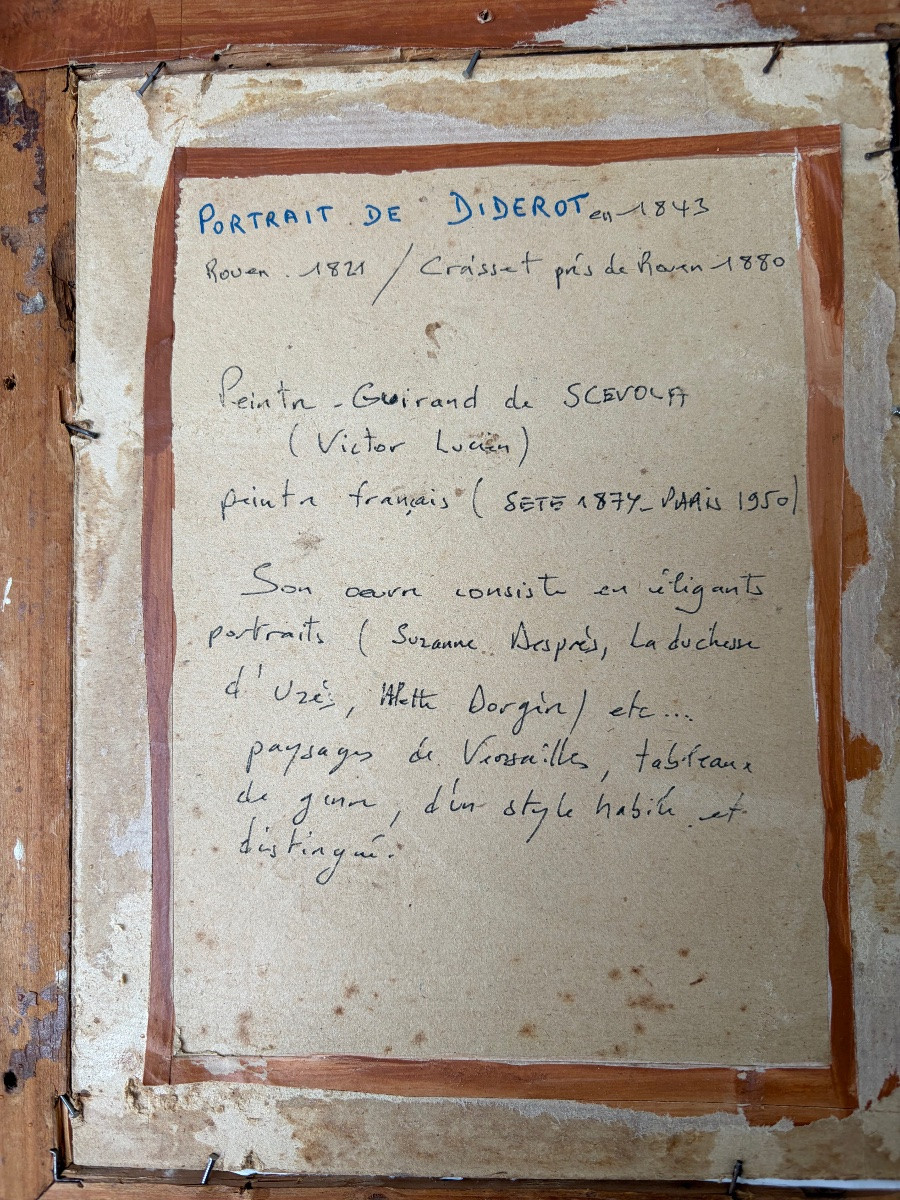 PORTRAIT DE DIDEROT en 1843
Rouen . 1821 / Croisset près de Rouen 1880
Peintre - Guirand de SCEVOLA
(Victor Lucien)
peintre français ( SETE 1874 - PARIS 1950)
Son œuvre consiste en élégants
portraits ( Suzanne Després, La duchesse
d'Uzès, Dorgère) etc...
paysages de Versailles, tableaux
de genre, d'un style habile et
distingué.